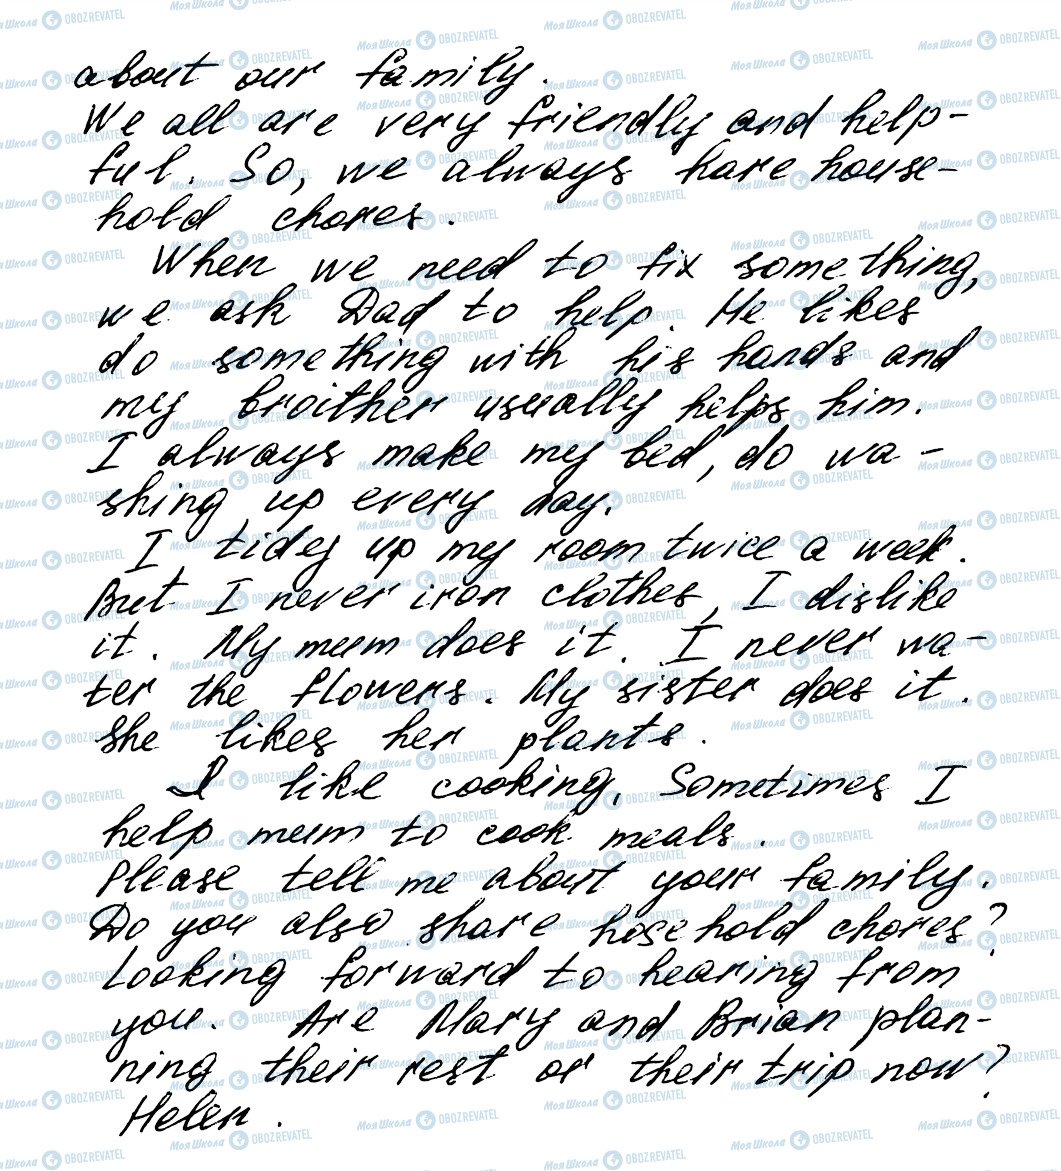 about our family.
We all are very friendly and help-
ful. So, we always hare house-
hold chores.
When we need to fix something,
we ask Dad to help. He likes
do something with his hands and
my broither usually helps him.
I always make my bed, do wa-
shing up every day.
I tidey up my room twice a week.
But I never iron clothes, I dislike
it. My mum does it. I never wa-
ter the flowers. My sister does it.
She likes her plants.
I like cooking. Sometimes I
help mum to cook meals.
Please tell me about your family.
Do you also share hose hold chores?
Looking forward to hearing from
you. Are Mary and Brian plan-
ning their rest or their trip now?
Helen.